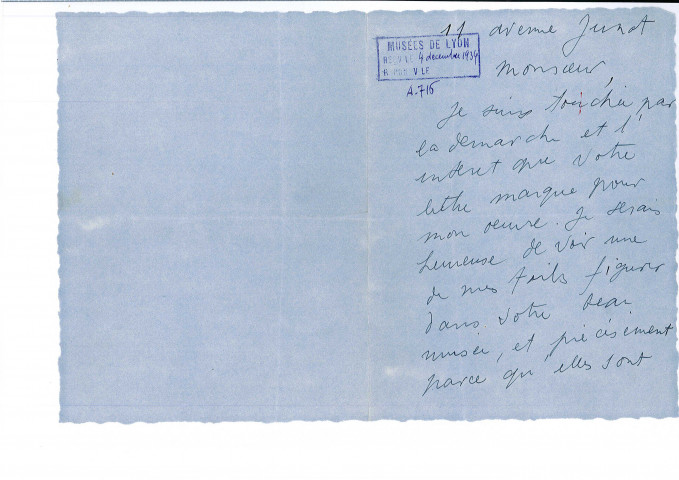 11 avenue Junot
MUSÉES DE LYON
REÇU LE 4 décembre 1934
RÉPONDU LE
A.716
Monsieur,
Je suis touchée par
la demarche et l'
interet que votre
lettre marque pour
mon oeuvre. Je serais
heureuse de voir une
de mes toiles figurer
dans votre beau
musée, et précisément
parce qu'elles sont